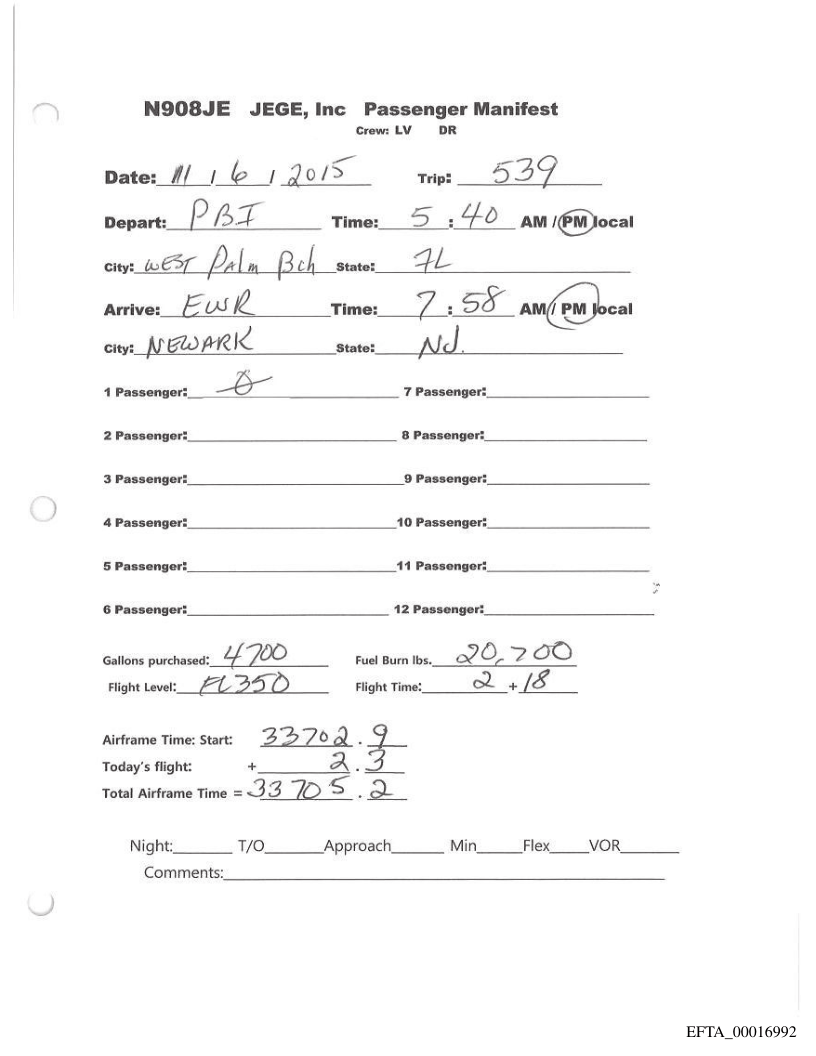 N908JE JEGE, Inc Passenger Manifest
Crew: LV DR
Date: / 6 / 2015 Trip: 539
Depart: PBI Time: 5 : 40 AM / PM local
City: WEST Palm Bch State: FL
Arrive: EWR Time: 7 : 58 AM / PM local
City: NEWARK State: NJ.
1 Passenger: 0 7 Passenger:
2 Passenger: 8 Passenger:
3 Passenger: 9 Passenger:
4 Passenger: 10 Passenger:
5 Passenger: 11 Passenger:
6 Passenger: 12 Passenger:
Gallons purchased: 4700 Fuel Burn lbs. 20,700
Flight Level: FL350 Flight Time: 2 + 18
Airframe Time: Start: 33702 . 9
Today's flight: + 2 . 3
Total Airframe Time = 33705 . 2
Night: T/O Approach Min Flex VOR
Comments:
EFTA_00016992